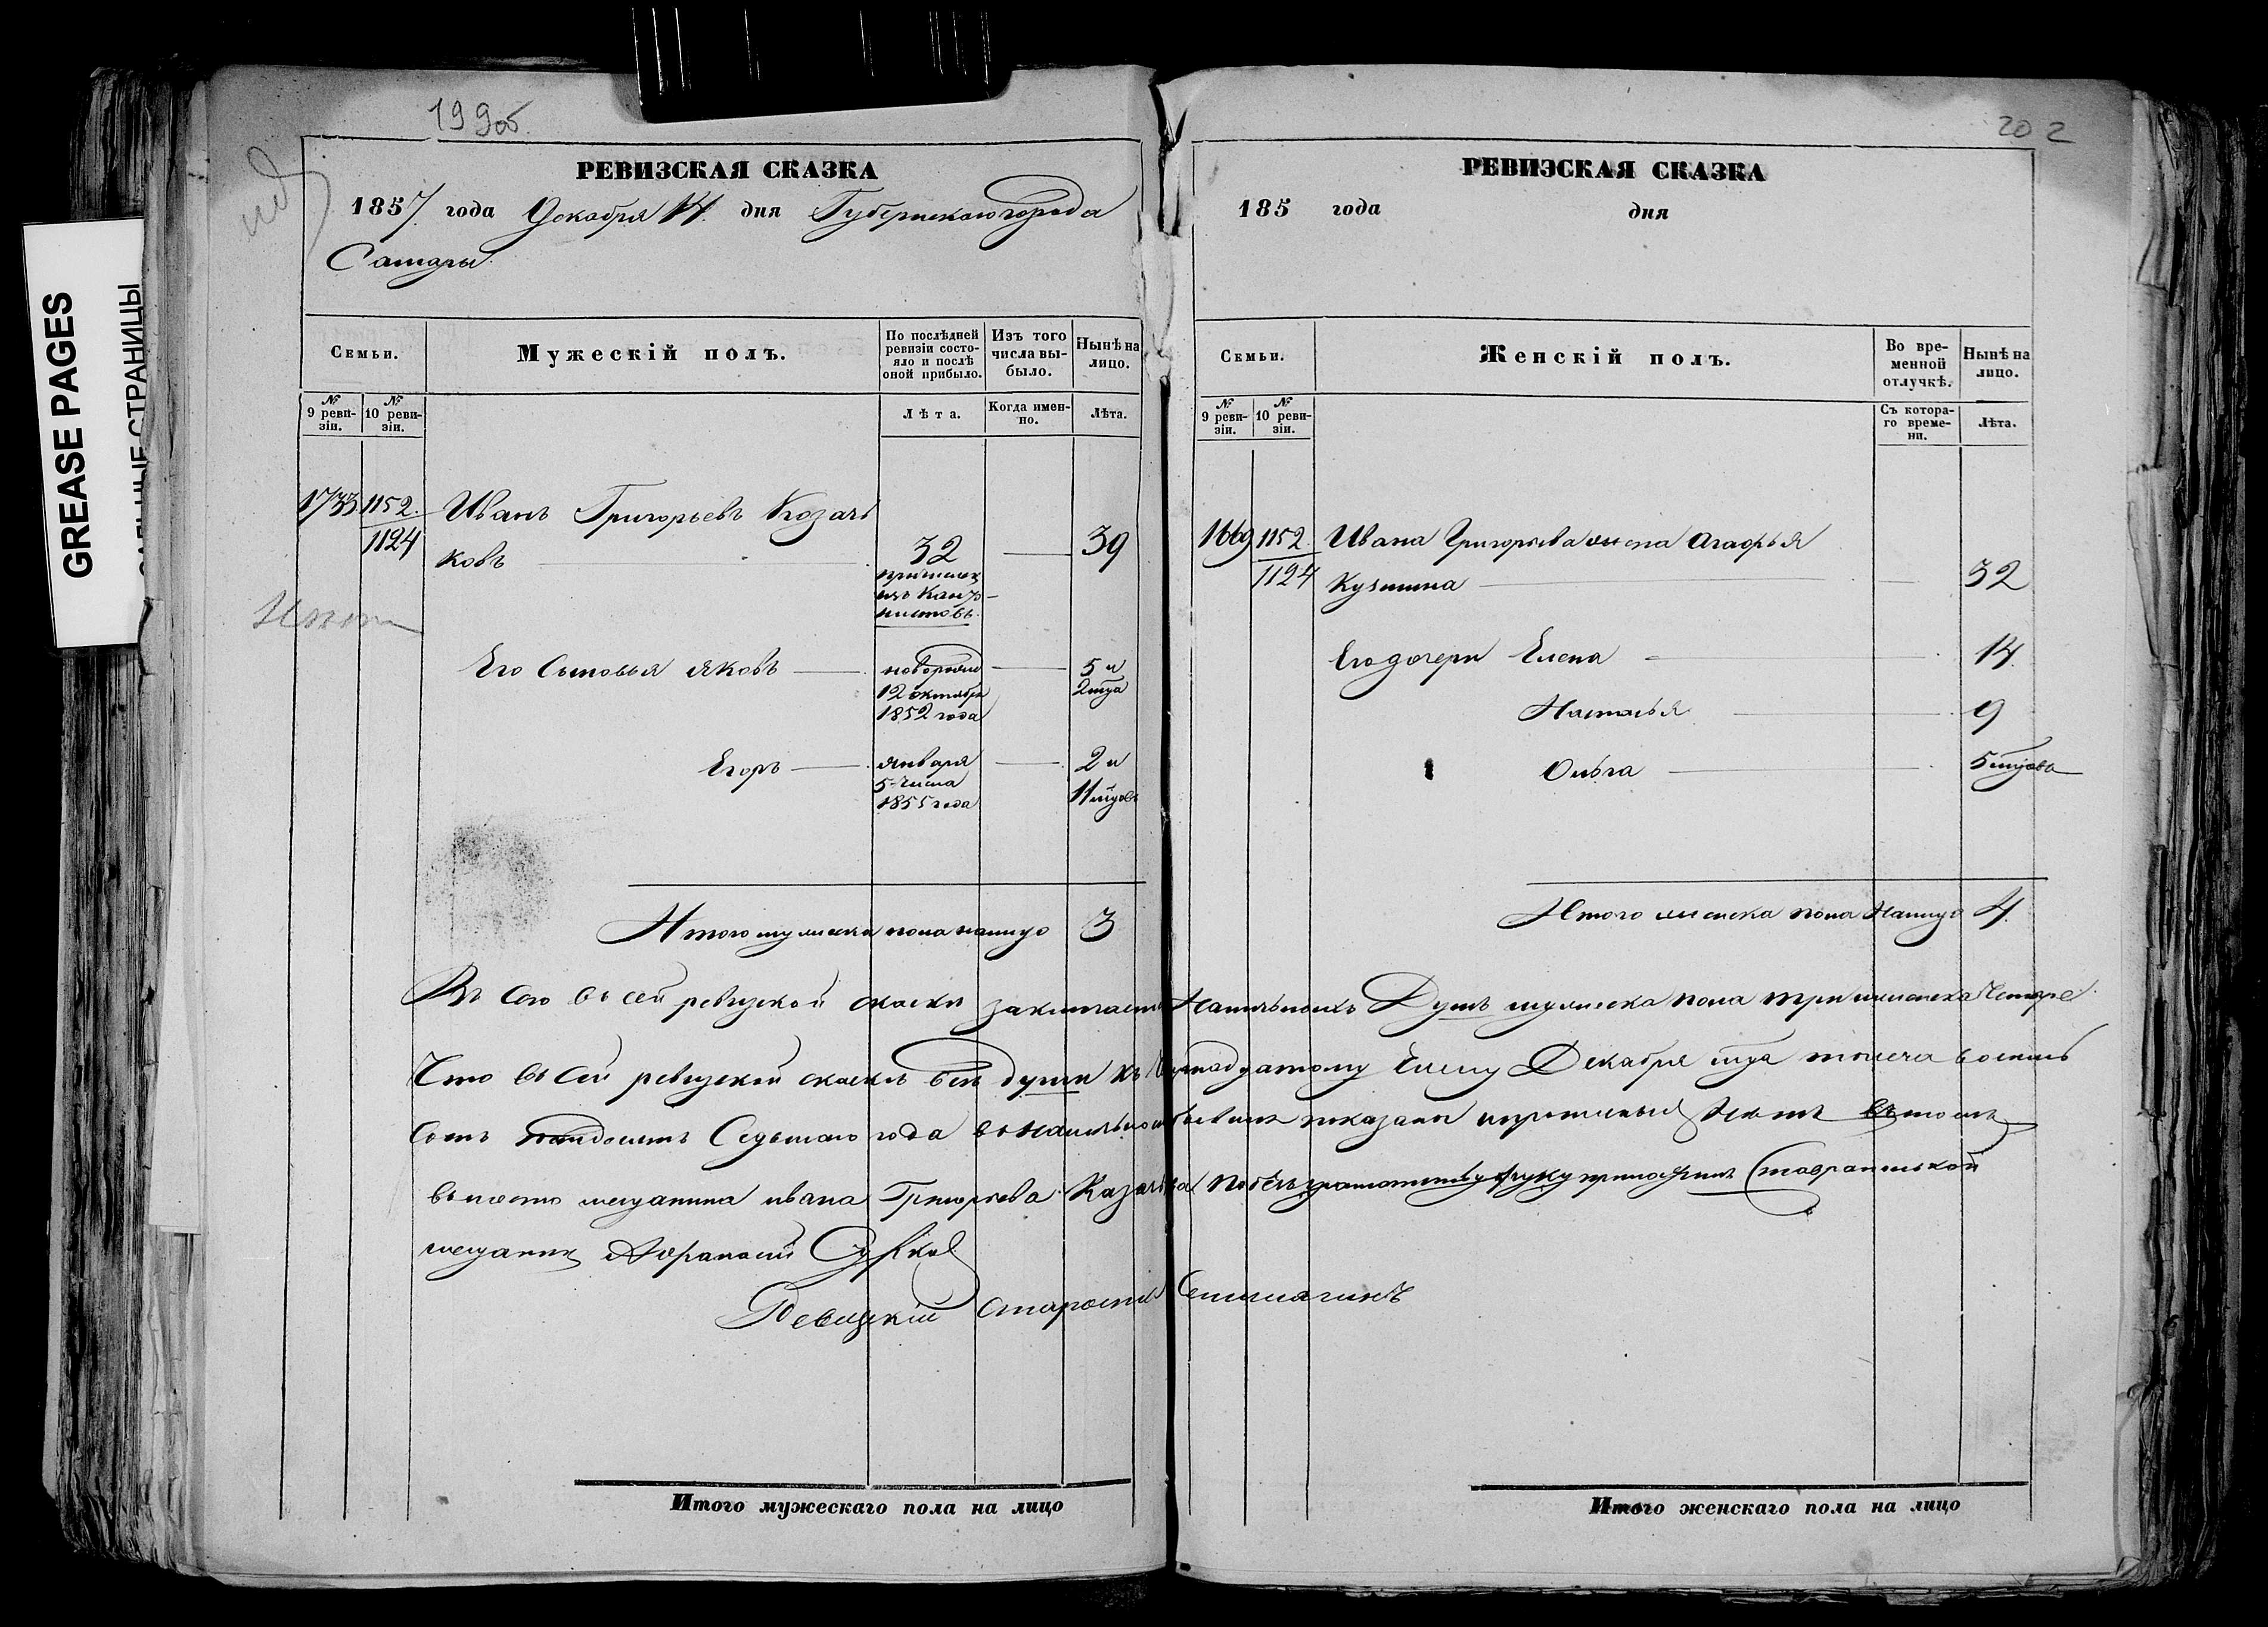 GREASE PAGES
САЛЬНЫЕ СТРАНИЦЫ
199об.
РЕВИЗСКАЯ СКАЗКА
1857 года Декабря 14 дня Губернскаго города
Самары
Семьи.
Мужескій полъ.
По послѣдней ревизіи состояло и послѣ оной прибыло.
Изъ того числа выбыло.
Нынѣ на лицо.
№ 9 ревизіи.
№ 10 ревизіи.
Лѣта.
Когда именно.
Лѣта.
1733 1152 Иванъ Григорьевъ Козачь
1124 ковъ 32 39
Его Сыновья Яковъ новорожд 5 и
12 октября 2 мца
1852 года
Егоръ января 2 и
5 числа 11 мцовъ
1855 года
Итого мужеска пола налицо 3
202
РЕВИЗСКАЯ СКАЗКА
185 года дня
Семьи.
Женскій полъ.
Во временной отлучкѣ.
Нынѣ на лицо.
№ 9 ревизіи.
№ 10 ревизіи.
Съ котораго времени.
Лѣта.
1669 1152 Ивана Григорьева жена Агафья
1124 Кузмина 32
Его дочери Елена 14
Наталья 9
Ольга 5 мцовъ
Итого женска пола Налицо 4
въ сей ревизской скаски Наличныхъ Душъ мужеска пола три женска Четыре
Что въ сей ревизской скаскѣ все души къ числу Декабря мца тысеча восемь
сотъ Седьмаго года показаны въ томъ
вместо мещанина ивана Григорьева Казачкова руку приложилъ Ставропольской
мещанинъ Афранасий Сурков
Ревизкій староста
Итого мужескаго пола на лицо
Итого женскаго пола на лицо